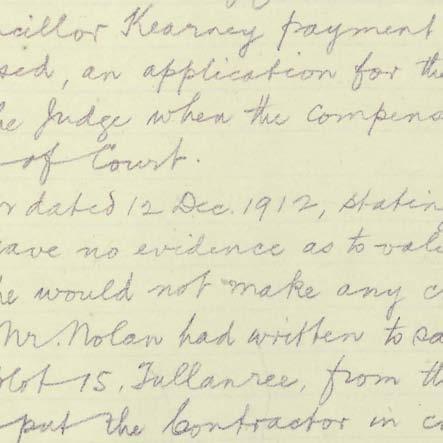 ncillor Kearney payment
sed, an application for the
he Judge when the compens
of Court.
r dated 12 Dec. 1912, stating
gave no evidence as to valu
he would not make any c
Mr. Nolan had written to sa
plot 15, Tullanree, from th
put the Contractor in c